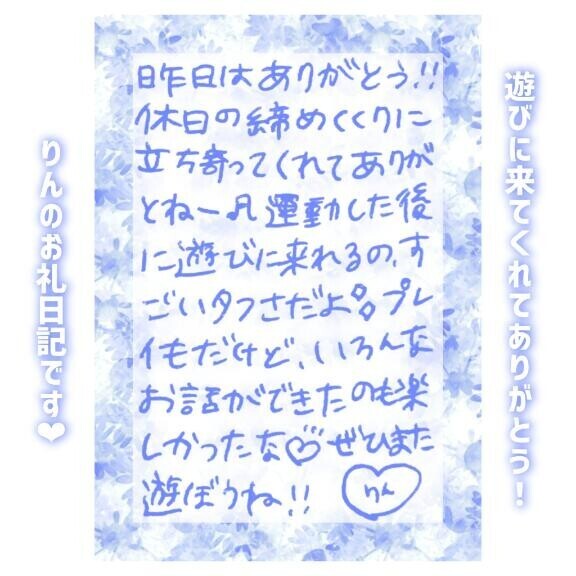 遊びに来てくれてありがとう！
昨日はありがとう!!
休日の締めくくりに
立ち寄ってくれてありが
とねー♬運動した後
に遊びに来れるの、す
ごいタフさだよ♢♢プレ
イもだけど、いろんな
お話ができたのも楽
しかったな♡ぜひまた
遊ぼうね!!
りん
りんのお礼日記です❤